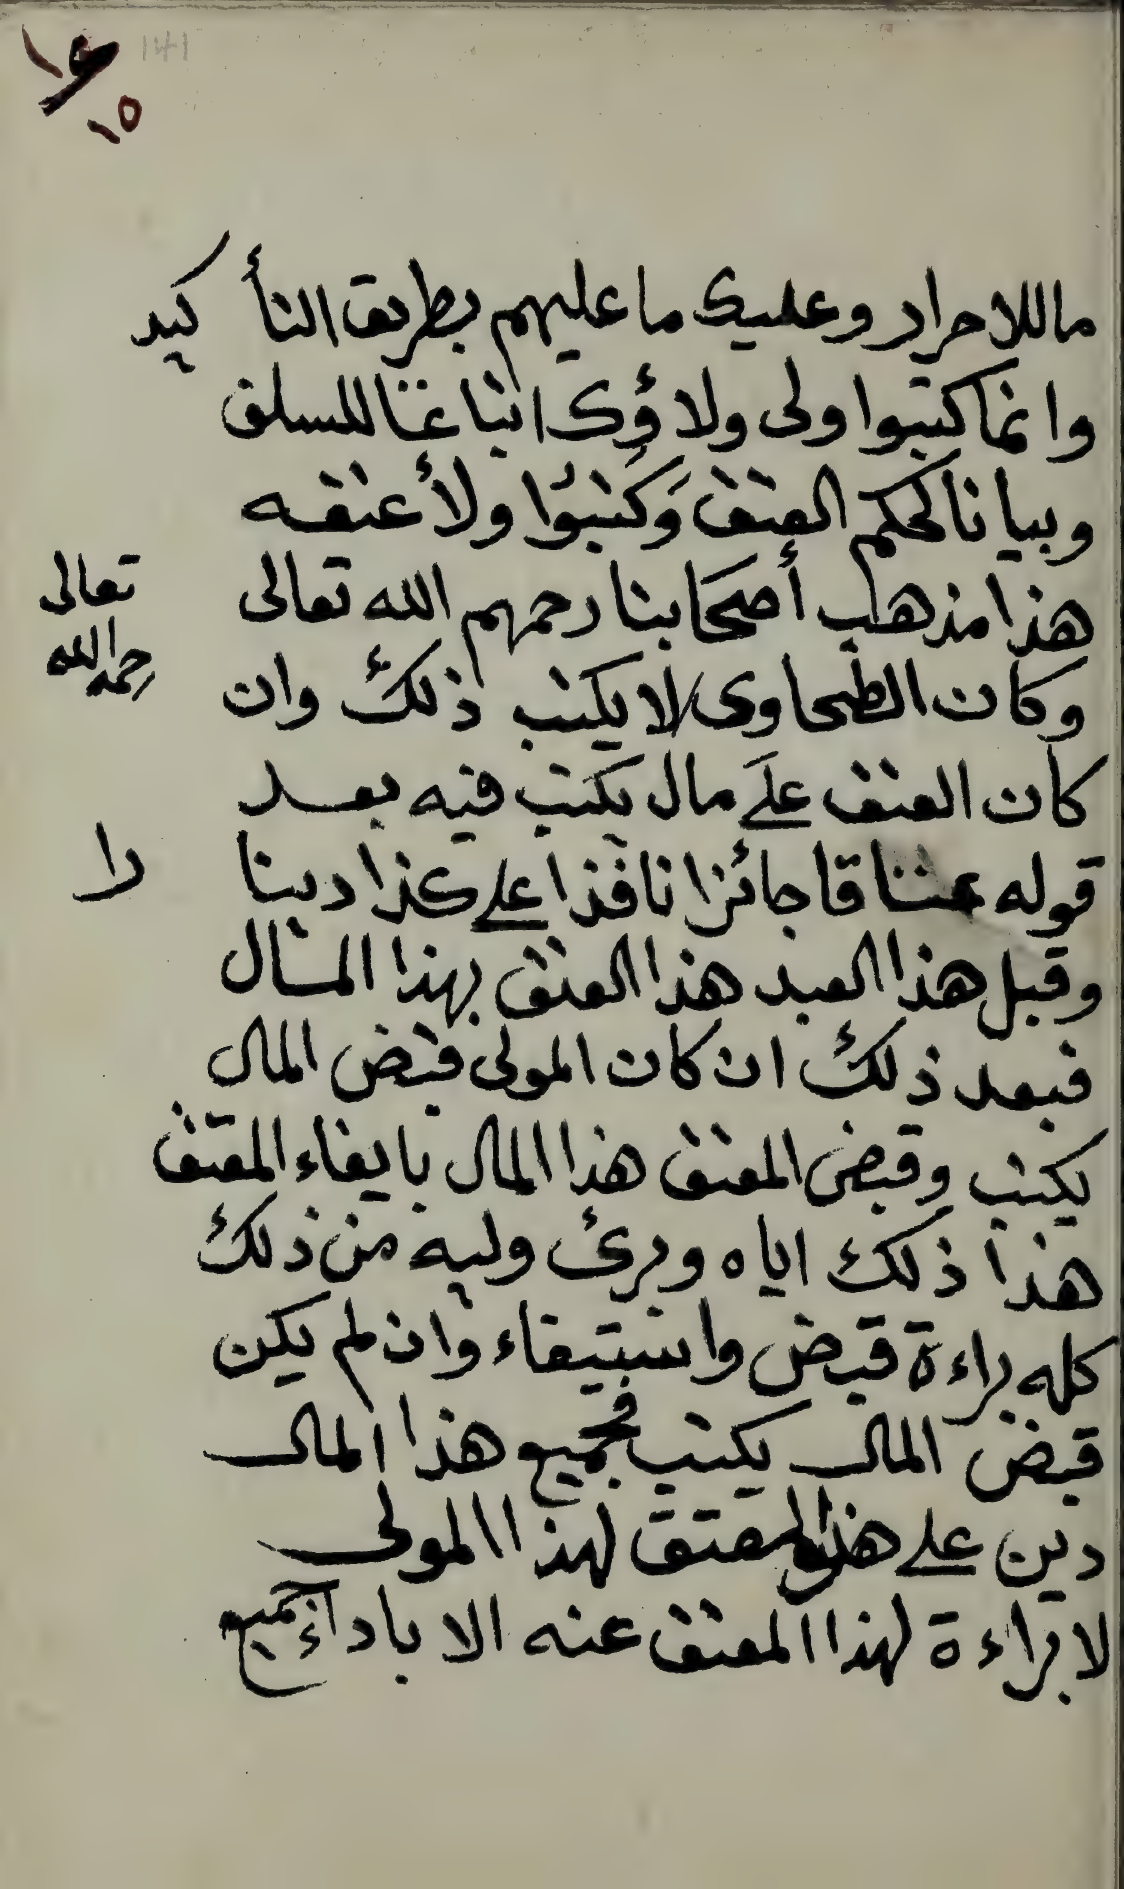 ١٤
١٥
141
ماللاحرار وعليك ما عليهم بطريق التأكيد
وانما كتبوا ولى ولاؤك اتباعا للسلف
وبيانا لحكم العتق وَكتبُوا ولأعتقه
هذا مذهب أصحَابنا رحمهم الله تعالى
وكان الطحاوى لا يكتب ذلك وان
تعالى
رحمه الله
كان العتق علَى مال يكتب فيه بعد
قوله عتاقا جائزا نافذا على كذا دينا
را
وقبل هذا العبد هذا العتق بهذا المال
فبعد ذلك ان كان المولى قبض المال
يكتب وقبض المعتق هذا المال بايفاء المعتق
هذا ذلك اياه وبرئ وليه من ذلك
كله براءة قبض واستيفاء وان لم يكن
قبض المال يكتب فجميع هذا المال
دين على هذا المعتق لهذا المولى
لا براءة لهذا المعتق عنه الا باداء جميع